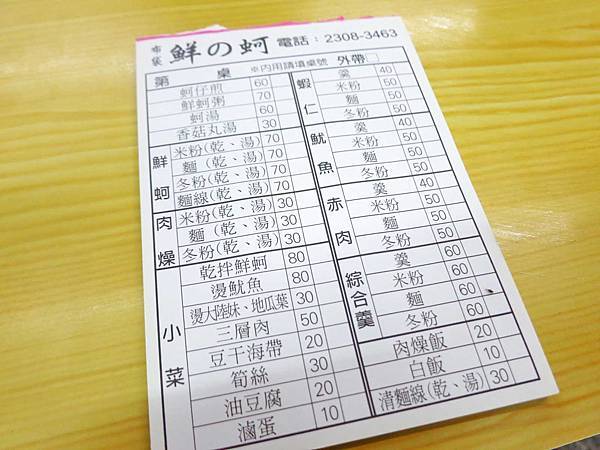 布袋 鮮の蚵 電話：2308-3463
第 桌 ※內用請填桌號 外帶□
蚵仔煎 60
鮮蚵粥 70
蚵湯 60
香菇丸湯 30
鮮蚵
米粉(乾、湯) 70
麵(乾、湯) 70
冬粉(乾、湯) 70
麵線(乾、湯) 70
肉燥
米粉(乾、湯) 30
麵(乾、湯) 30
冬粉(乾、湯) 30
小菜
乾拌鮮蚵 80
燙魷魚 80
燙大陸妹、地瓜葉 30
三層肉 50
豆干海帶 20
筍絲 30
油豆腐 20
滷蛋 10
蝦仁
羹 40
米粉 50
麵 50
冬粉 50
魷魚
羹 40
米粉 50
麵 50
冬粉 50
赤肉
羹 40
米粉 50
麵 50
冬粉 50
綜合羹
羹 60
米粉 60
麵 60
冬粉 60
肉燥飯 20
白飯 10
清麵線(乾、湯) 30